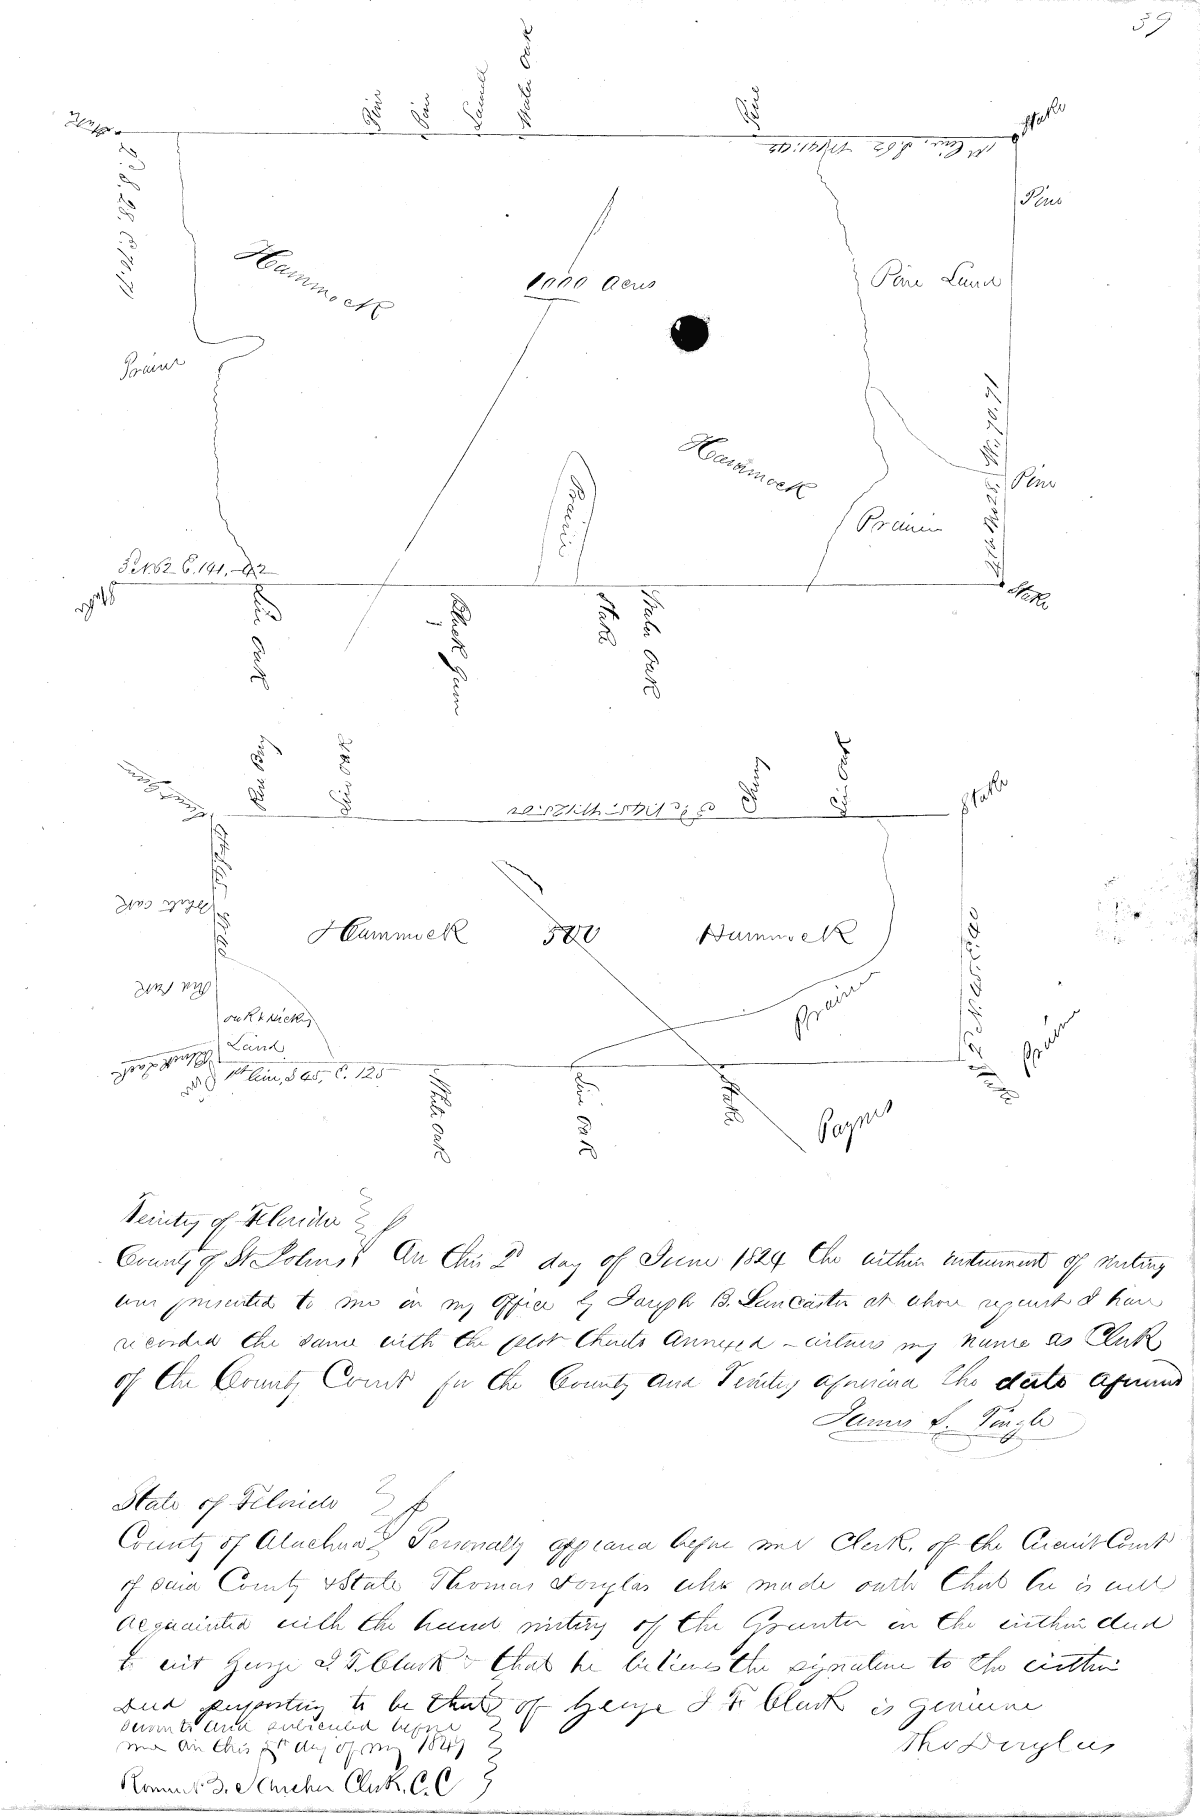 39
Pine
Pine
Laurel
Water Oak
Pine
Stake
Stake
Pine
Hammock
1000 Acres
Pine Land
Prairie
Hammock
Prairie
Prairie
Pine
3d N.62 E.141,-42
Stake
Stake
Live Oak
Black Gum
Stake
Water Oak
Live Oak
Cherry
Live Oak
Stake
White Oak
Hammock 500 Hammock
Red Oak
Oak & Hickory
Land
Prairie
Prairie
Black Jack
Pine
1st line, S 45, E. 125
White Oak
Live Oak
Stake
Stake
Paynes
Territy of Florida
County of St Johns On this 2d day of June 1824 the within instrument of writing
was presented to me in my office by Joseph B. Lancaster at whose request I have
recorded the same with the plot thereto annexed - witness my name as Clerk
of the County Court for the County and Territy aforesaid the date aforesaid
James S. Tingle
State of Florida
County of Alachua Personally appeared before me Clerk, of the Circuit Court
of said County & State Thomas Douglas who made oath that he is well
acquainted with the hand writing of the Grantor in the within deed
to wit George I F. Clark & that he believes the signature to the within
Deed purporting to be that of George I F Clark is genuine
Sworn to and subscribed before
me on this day of 1849
Tho Douglas
Clerk, C.C